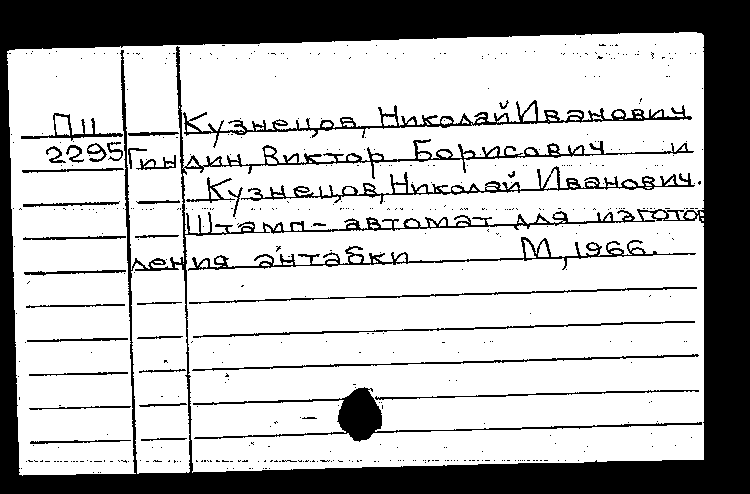 П11 Кузнецов, Николай Иванович
2295 Гиндин, Виктор Борисович и
Кузнецов, Николай Иванович.
Штамп-автомат для изготов
ления антабки М, 1966.